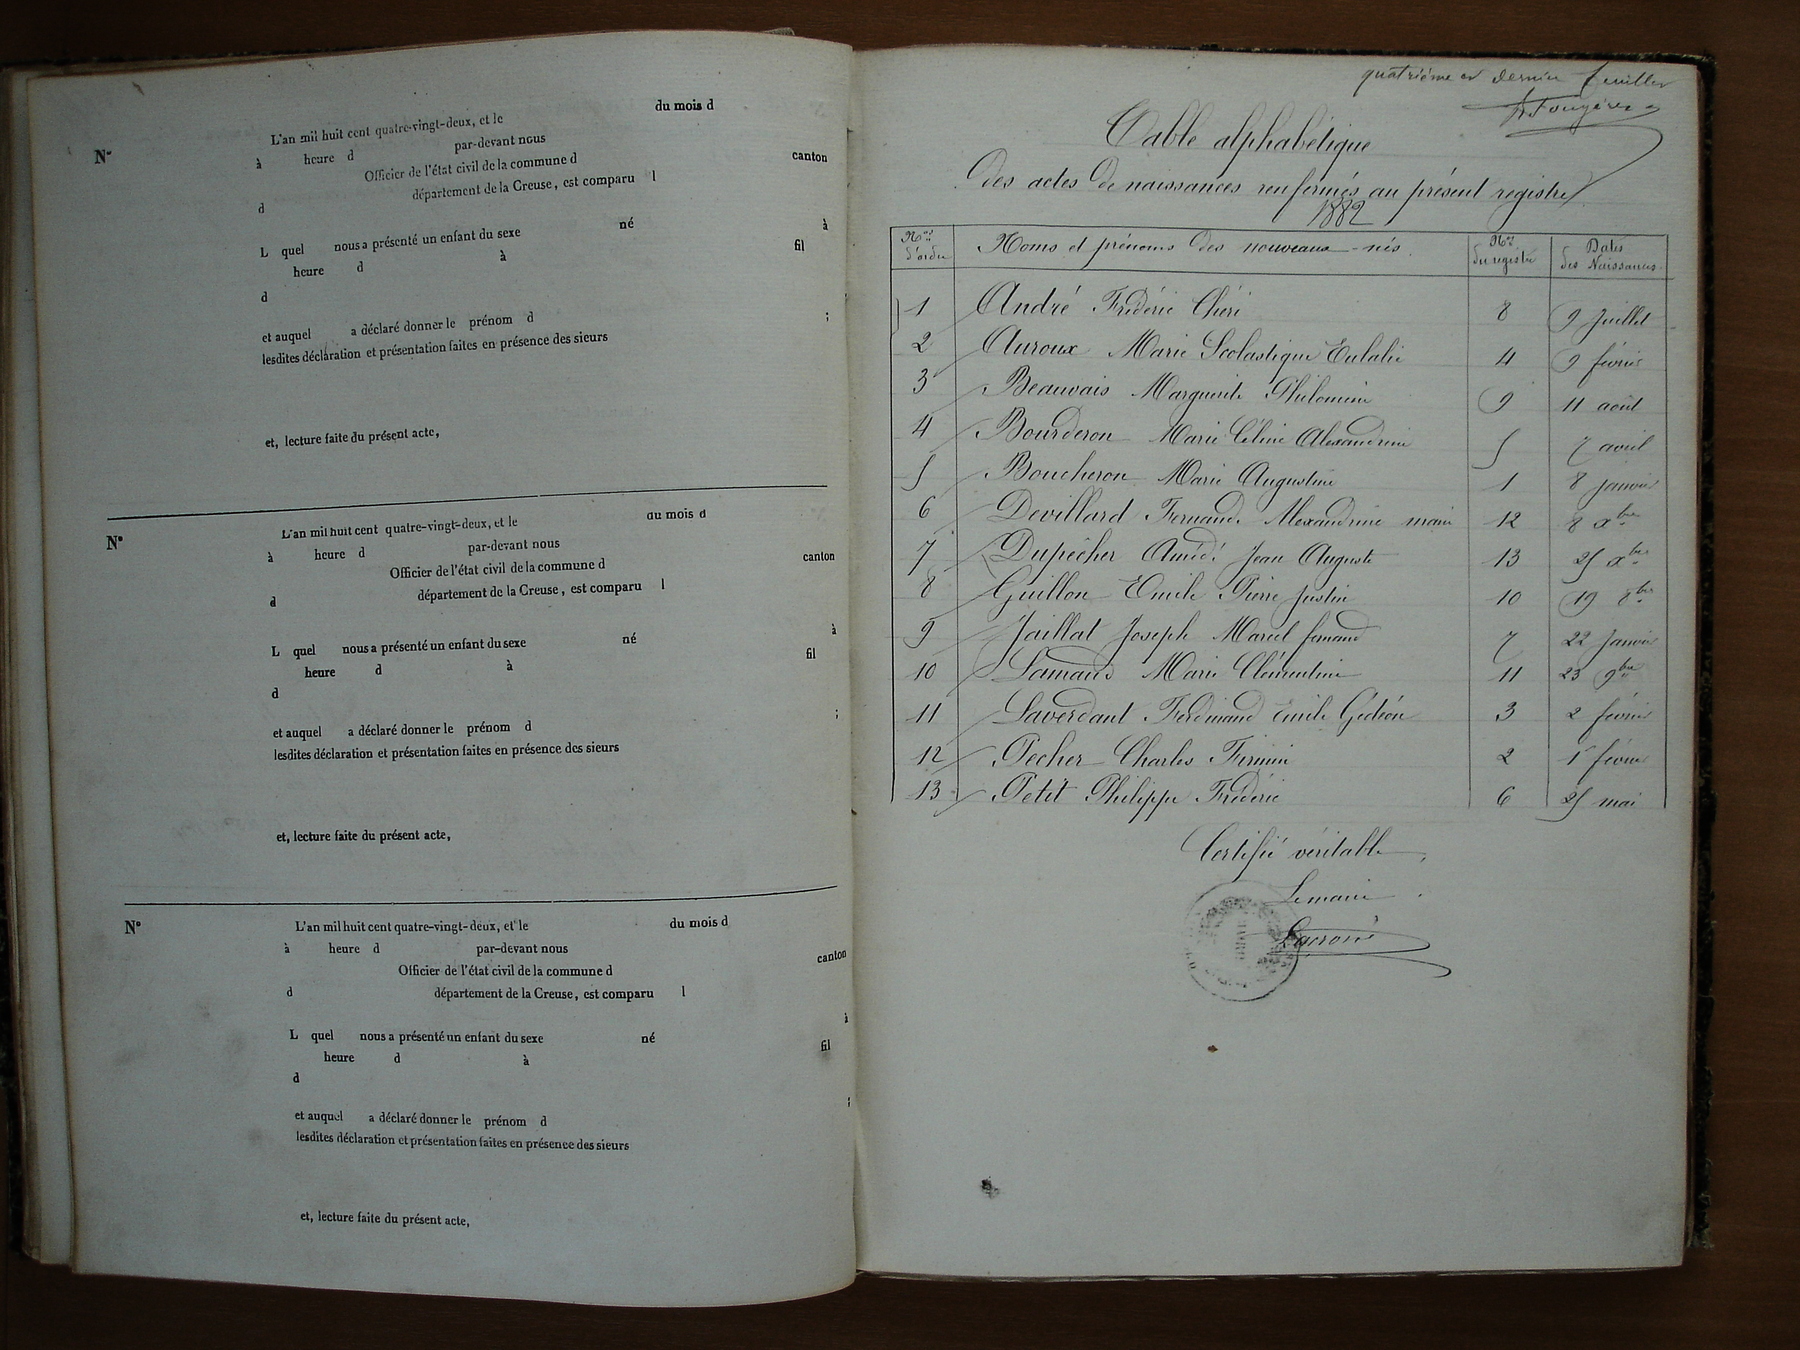 du mois d
L'an mil huit cent quatre-vingt-deux, et le
N° à heure d par-devant nous
Officier de l'état civil de la commune d canton
d département de la Creuse, est comparu l
à
L quel nous a présenté un enfant du sexe né
heure d à fil
d
et auquel a déclaré donner le prénom d ;
lesdites déclaration et présentation faites en présence des sieurs
et, lecture faite du présent acte,
N° L'an mil huit cent quatre-vingt-deux, et le du mois d
à heure d par-devant nous
Officier de l'état civil de la commune d canton
d département de la Creuse, est comparu l
à
L quel nous a présenté un enfant du sexe né
heure d à fil
d
et auquel a déclaré donner le prénom d ;
lesdites déclaration et présentation faites en présence des sieurs
et, lecture faite du présent acte,
N° L'an mil huit cent quatre-vingt-deux, et le du mois d
à heure d par-devant nous
Officier de l'état civil de la commune d canton
d département de la Creuse, est comparu l
à
L quel nous a présenté un enfant du sexe né
heure d à fil
d
et auquel a déclaré donner le prénom d ;
lesdites déclaration et présentation faites en présence des sieurs
et, lecture faite du présent acte,
quatrième et dernier feuillet
Table alphabétique
des actes de naissances renfermés au présent registre
1882
Nos d'ordre Noms et prénoms des nouveaux-nés Nos du registre Dates des Naissances
1 André Frédéric Chéri 8 9 juillet
2 Auroux Marie Scolastique Eulalie 4 9 février
3 Beauvais Marguerite Philomine 9 11 août
4 Bourderon Marie Céline Alexandrine 5 7 avril
5 Boucheron Marie Augustine 1 8 janvier
6 Devillard Fernand Alexandrine marie 12 8 xbre
7 Dupêcher Amédé Jean Auguste 13 25 xbre
8 Guillon Emile Pierre Justin 10 19 8bre
9 Jaillat Joseph Marcel fernand 7 22 Janvier
10 Lamaud Marie Clémentine 11 23 9bre
11 Laverdant Ferdinand Emile Gédéon 3 2 février
12 Pecher Charles Firmin 2 1r février
13 Petit Philippe Frédéric 6 25 mai
Certifié véritable,
Le maire